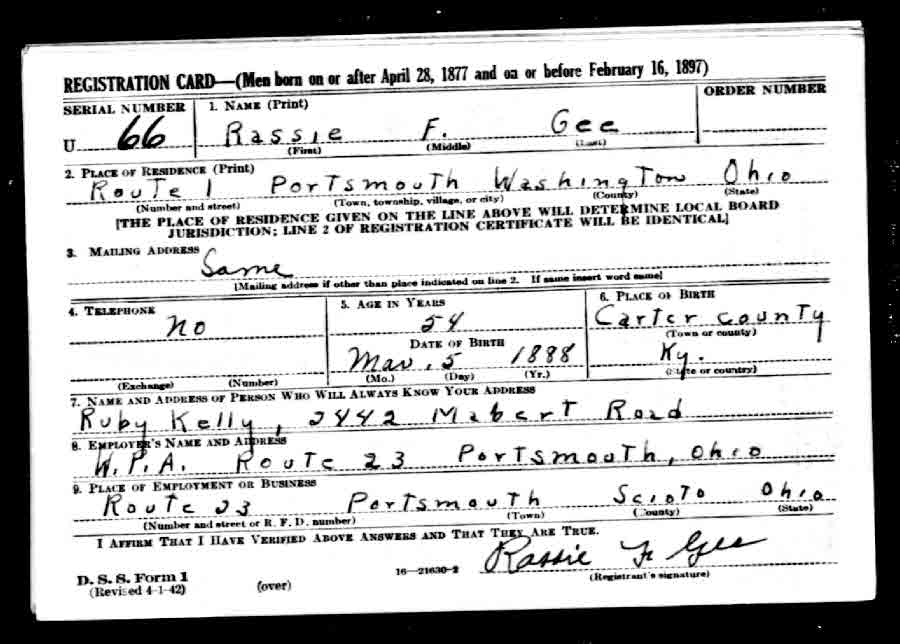 REGISTRATION CARD—(Men born on or after April 28, 1877 and on or before February 16, 1897)
SERIAL NUMBER 1. NAME (Print) ORDER NUMBER
U 66 Rassie F. Gee
(First) (Middle) (Last)
2. PLACE OF RESIDENCE (Print)
Route 1 Portsmouth Washington Ohio
(Number and street) (Town, township, village, or city) (County) (State)
[THE PLACE OF RESIDENCE GIVEN ON THE LINE ABOVE WILL DETERMINE LOCAL BOARD
JURISDICTION; LINE 2 OF REGISTRATION CERTIFICATE WILL BE IDENTICAL]
3. MAILING ADDRESS
Same
[Mailing address if other than place indicated on line 2. If same insert word same]
4. TELEPHONE 5. AGE IN YEARS 6. PLACE OF BIRTH
No 54 Carter county
(Town or county)
DATE OF BIRTH
Mar. 5 1888 Ky.
(Exchange) (Number) (Mo.) (Day) (Yr.) (State or country)
7. NAME AND ADDRESS OF PERSON WHO WILL ALWAYS KNOW YOUR ADDRESS
Ruby Kelly, 2442 Mabert Road
8. EMPLOYER'S NAME AND ADDRESS
W.P.A. Route 23 Portsmouth, Ohio
9. PLACE OF EMPLOYMENT OR BUSINESS
Route 23 Portsmouth Scioto Ohio
(Number and street or R. F. D. number) (Town) (County) (State)
I AFFIRM THAT I HAVE VERIFIED ABOVE ANSWERS AND THAT THEY ARE TRUE.
Rassie F Gee
D. S. S. Form 1 16—21630-2 (Registrant's signature)
(Revised 4-1-42) (over)